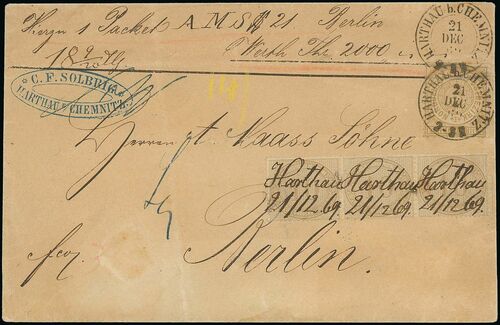 Hierzu 1 Packet A M S 21 Berlin
Werth Thr. 2000
C. F. SOLBRIG
HARTHAU B/ CHEMNITZ.
HARTHAU b. CHEMNITZ
21
DEC
HARTHAU b. CHEMNITZ
21
DEC
Herren Maass Söhne
Harthau Harthau Harthau
21/12 69. 21/12 69. 21/12 69.
Berlin.